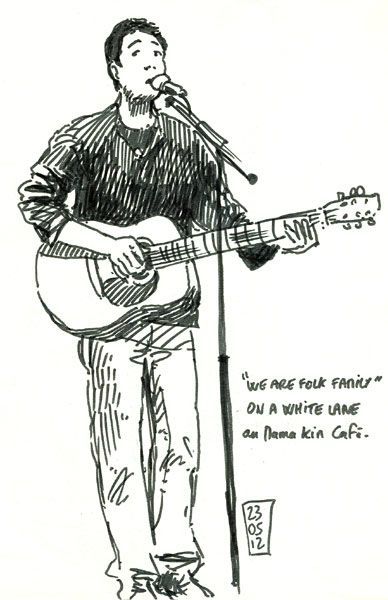 "WE ARE FOLK FAMILY"
ON A WHITE LANE
au Mama Kin Café.
23
05
12